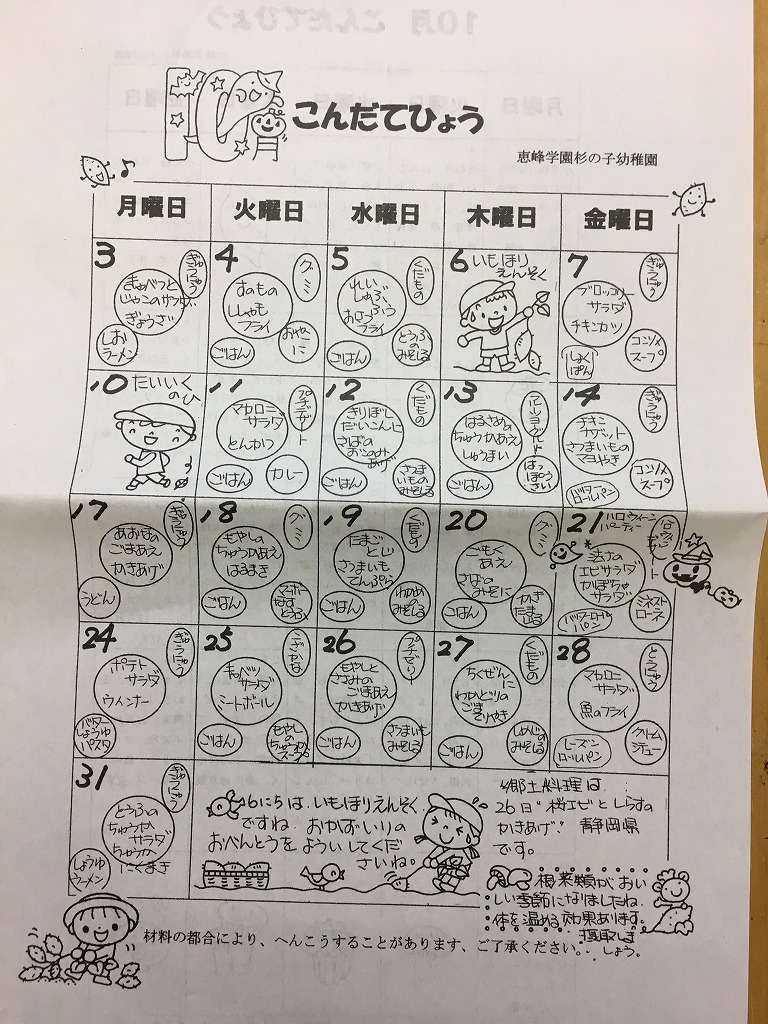 10
こんだてひょう
恵峰学園杉の子幼稚園
月曜日 火曜日 水曜日 木曜日 金曜日
3
ぎゅうにゅう
きゅべつと
じゃこのサラダ
ぎょうざ
しお
ラーメン
4
グミ
すのもの
ししゃも
フライ
ごはん
おやこ
に
5
くだもの
れい
しゃぶ
フライ
ごはん
とうふ
の
みそしる
6 いもほり
えんそく
7
ぎゅうにゅう
ブロッコリー
サラダ
チキンカツ
しょく
ぱん
コンソメ
スープ
10 たいいく
のひ
11
プチデザート
マカロニ
サラダ
とんかつ
ごはん
カレー
12
くだもの
きりぼし
だいこんに
さばの
おこのみ
あげ
ごはん
さつま
いもの
みそしる
13
はるさめの
ちゅうかあえ
しゅうまい
ごはん
はっ
ぽう
さい
14
ぎゅうにゅう
チキン
ナゲット
さつまいもの
マヨやき
バター
ロールパン
コンソメ
スープ
17
ぎゅうにゅう
あおなの
ごまあえ
かきあげ
うどん
18
グミ
もやしの
ちゅうかあえ
はるまき
ごはん
マーボー
なす
とうふ
19
くだもの
たまご
とじ
さつまいも
てんぷら
ごはん
わかめの
みそしる
20
グミ
ごもく
あえ
さばの
みそに
ごはん
かき
たま
じる
21 ハロウィーン
パーティー
エビサラダ
かぼちゃ
サラダ
バターロール
パン
ミネスト
ローネ
24
ぎゅうにゅう
ポテト
サラダ
ウィンナー
バター
しょうゆ
パスタ
25
こざかな
キャベツ
サラダ
ミートボール
ごはん
もやし
の
ちゅうか
スープ
26
プチゼリー
もやしと
ささみの
ごまあえ
かきあげ
ごはん
さつまいも
みそしる
27
くだもの
ちくぜん
に
わかどりの
ごま
てりやき
ごはん
しめじの
みそしる
28
とうにゅう
マカロニ
サラダ
魚のフライ
レーズン
ロールパン
クリーム
シチュー
31
ぎゅうにゅう
とうふの
ちゅうか
サラダ
ちゅうか
にくまき
しょうゆ
ラーメン
6にちは、いもほりえんそく
ですね。おかずいりの
おべんとうを よういしてくだ
さいね。
郷土料理は
26日“桜エビとしらすの
かきあげ” 静岡県
です。
根菜類がおい
しい季節になりましたね
体を温める効果あります。
摂取しま
しょう。
材料の都合により、へんこうすることがあります、ご了承ください。